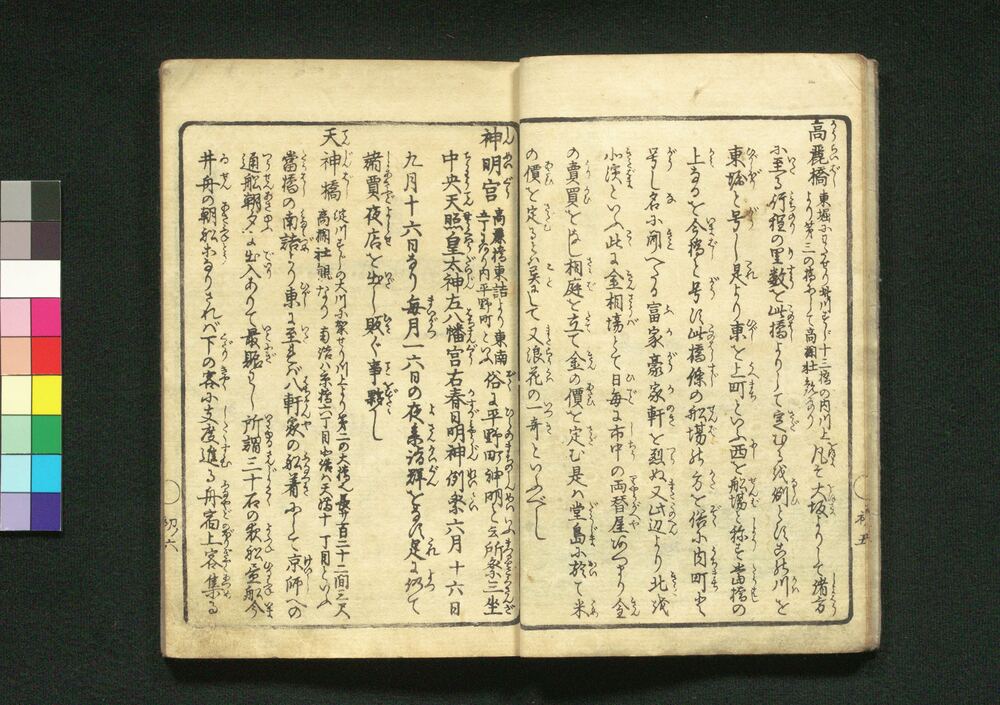 高麗橋 東堀にわたせり 井川すじ十三橋の内川上より第三の橋にして高欄杜観なり 凡そ大坂よりして諸方
に至る行程の里数を此橋よりして定むるを例とす 此川を
東堀と号し是より東を上町といふ西を船場と称す当橋の
上なるを今橋と号す此橋條の船場の方を俗に内町と
号し名に聞へたる富家豪家軒を烈ぬ又此辺より北浜
に渡といふ此に金相場とて日毎に市中の両替屋あつまり金
の賣買をなし相庭を立て金の價を定む是ハ堂島に於て米
の價を定るに等して又浪花の一奇といふべし
神明宮 高麗橋東詰より東南 内平野町にあり 俗に平野町神明と云所祭三坐
中央天照皇太神左八幡宮右春日明神例祭六月十六日
九月十六日なり毎月一六日の夜参詣群をなす是に仍て
諸賈夜店を出し賑ふ事夥し
天神橋 此川すじの大川に架せり川上より第二の大橋也長サ百二十二間三尺 高欄杜観なり 南詰ハ京橋六丁目北詰ハ天満十丁目といふ
當橋の南詰より東に至れバ八軒家の船着にして京師への
通船朝夕に出入ありて最賑はし所謂三十石の夜船昼船今
井舟の朝船になりされバ下の客に支度進る舟宿上客集る
初ノ五
初ノ六